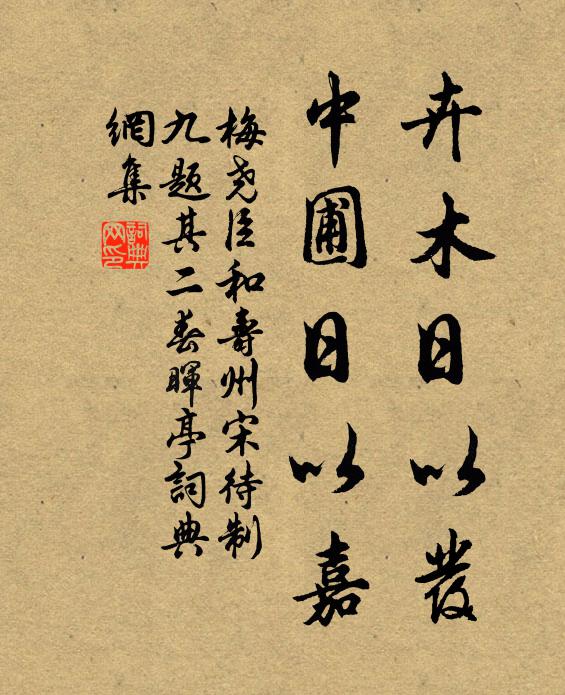 卉木日以發
中圃日以嘉
梅堯臣和壽州宋待制
九題其二春暉亭詞典
網集
詞典
网印